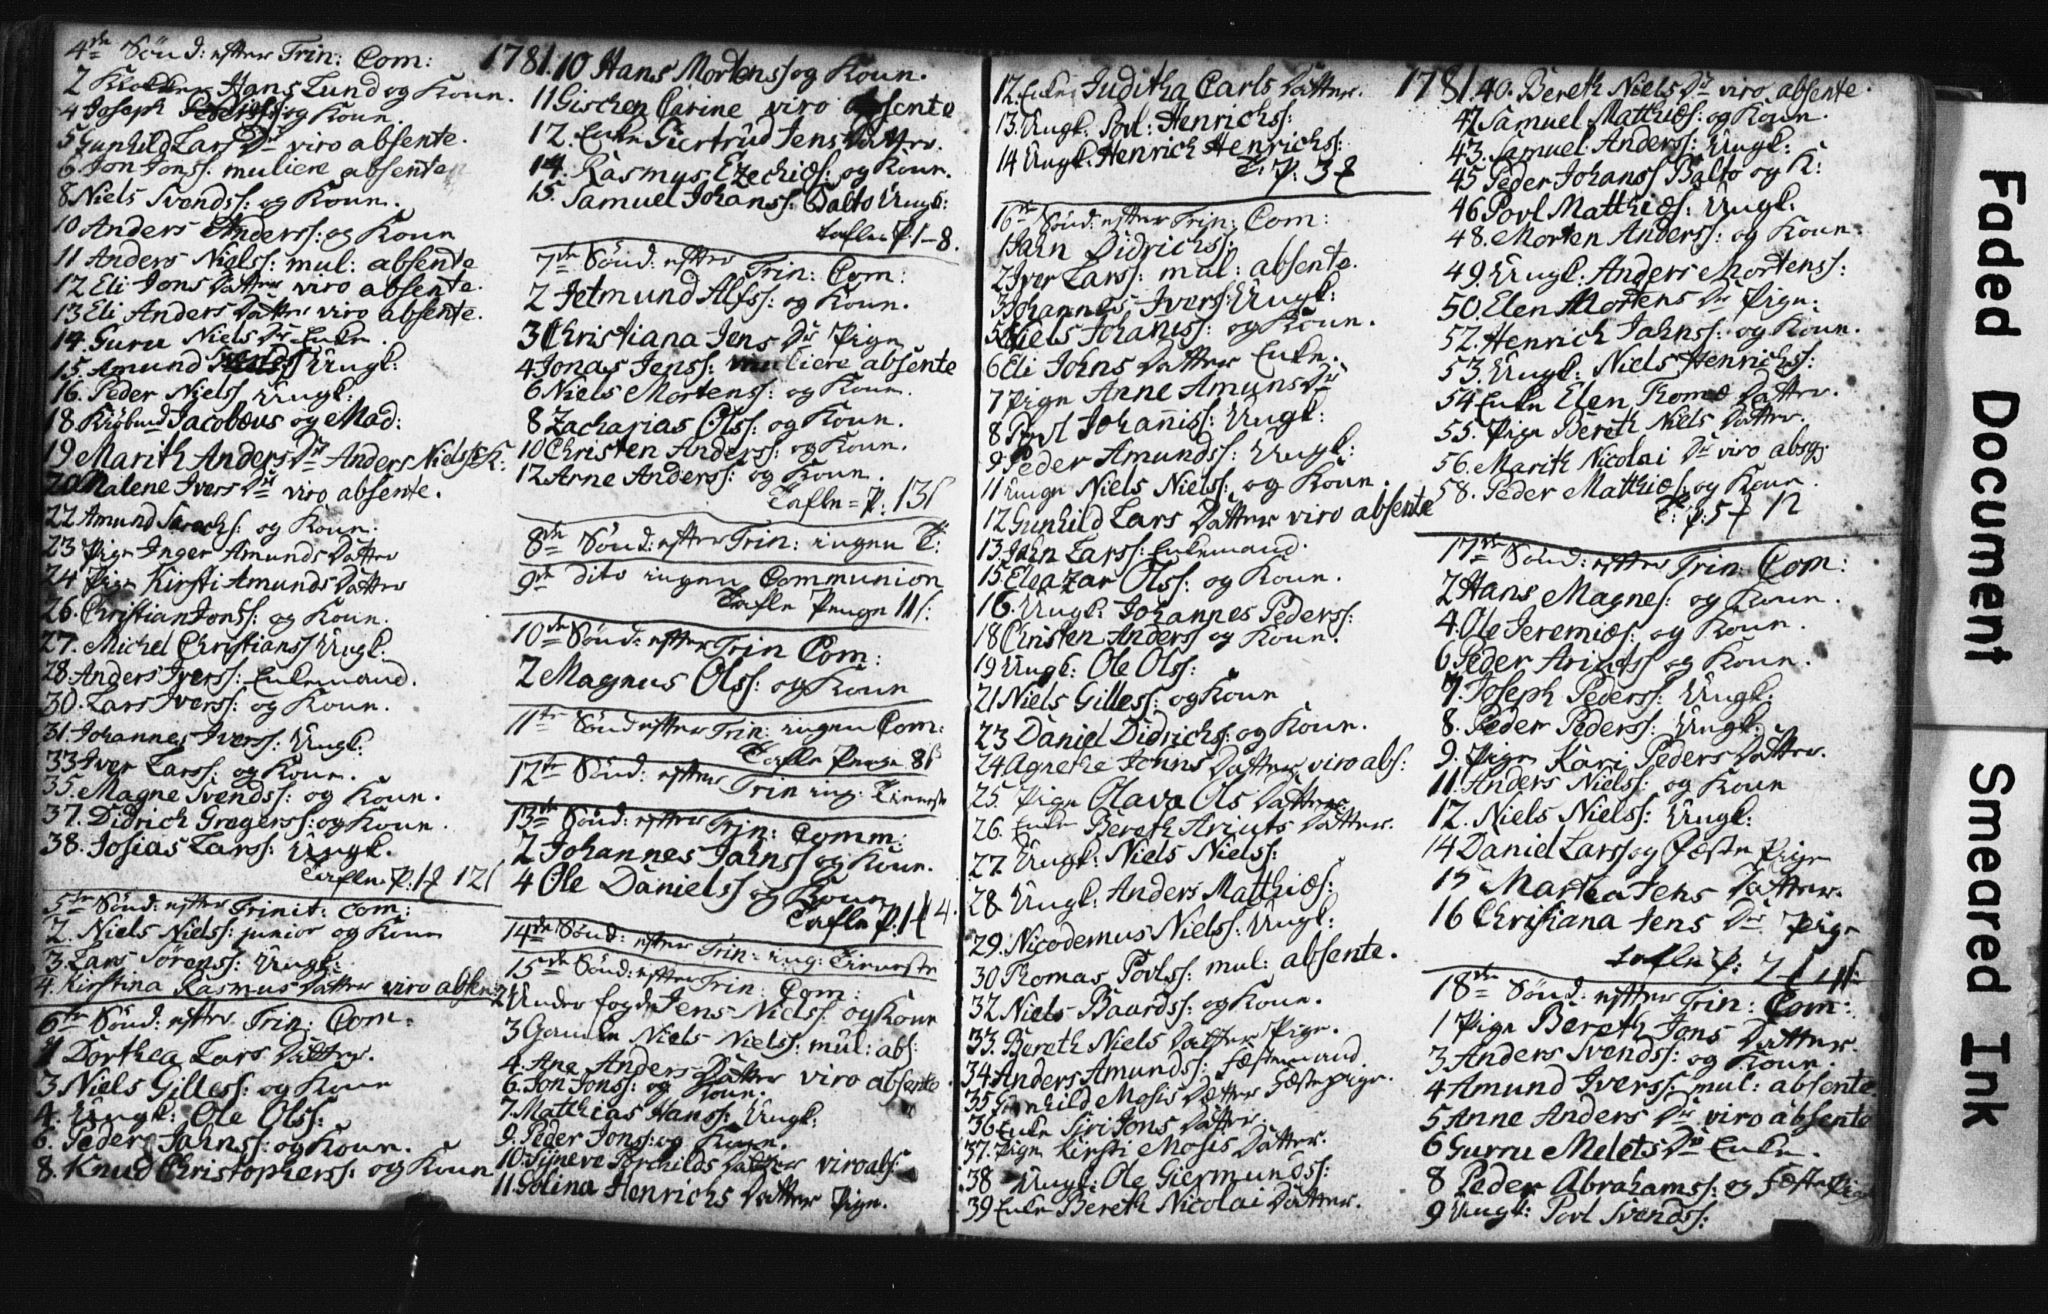 4de Sönd: efter Trin: Com: 1781.
2 Klokker Hans Lund og Kone.
4 Joseph Pederss: og Kone.
5 Gunhild Lars Dr viro absente.
6 Jon Jonss: muliere absente
8 Niels Svendss: og Kone.
10 Anders Anderss: og Kone
11 Anders Nielss: mul: absente
12 Eli Jons Datter viro absente.
13 Eli Anders Datter viro absente.
14. Guru Niels Dr Enke.
15. Amund Nielss Ungk:
16. Peder Nielss Ungk:
18. Kiøbmd Jacobæus og Mad:
19 Marith Anders Dr Anders Nielss: K:
20 Malene Ivers Dr viro absente.
22 Amund Sarachs: og Kone.
23 Pige Inger Amunds Datter
24 Pige Kirsti Amunds Datter
26. Christian Jonss: og Kone.
27. Michel Christianss Ungk:
28. Anders Iverss: Enkemand.
30. Lars Iverss: og Kone.
31. Johannes Iverss: Ungk:
33 Iver Larss: og Kone.
35. Magne Svendss: og Kone.
37. Didrich Gregerss: og Kone.
38. Josias Larss: Ungk.
Tafle. P. 1 12ſ
5te Sönd: efter Trinit: Com:
2. Niels Nielss: junior og Kone
3. Lars Sørenss: Ungk:
4. Kirstina Rasmus Datter viro absen:
6te Sönd: efter Trin: Com:
1 Dorthea Lars Datter.
3 Niels Gilless: og Kone
4. Ungk: Ole Olss:
6. Peder Jahnss: og Kone.
8. Knud Christopherss: og Kone
10 Hans Mortenss og Kone.
11 Gischen Carine viro absente
12. Enke Giertrud Jens Datter.
14. Rasmus Ezechiæs: og Kone.
15. Samuel Johanss: Balto Ungk:
Tafle. P. 1-8.
7de Sönd: efter Trin: Com:
2 Jetmund Alfss: og Kone.
3 Christiana Jens Dr Pige
4 Jonas Jenss: muliere absente
6 Niels Mortenss: og Kone.
8 Zacharias Olss: og Kone.
10 Christen Anderss: og Kone.
12 Arne Anderss: og Kone.
Tafle = P: 13ſ
8de Sönd: efter Trin: ingen T:
9de dito ingen Communion
Tafle Penge 11ſ:
10de Sönd: efter Trin Com:
2 Magnus Olss: og Kone
11te Sönd efter Trin: ingen Com:
Tafle Penge 8ſ
12te Sönd: efter Trin ing: Tieneste
13de Sönd: efter Trin: Comm:
2 Johannes Jahnss og Kone.
4 Ole Danielss og Kone
Tafle P: 1 4.
14de Sönd: efter Trin: ing: Tieneste
15de Sönd: efter Trin: Com:
2 Underfogde Jens Nielss: og Kone
3 Gamle Niels Nielss: mul: abs:
4. Ane Anders Datter viro absente
6. Jon Jonss: og Kone.
7. Matthias Hanss: Ungk:
9. Peder Jonss: og Kone.
10. Signeve Torchilds Datter viro abs:
11. Golina Henrichs Datter Pige.
12. Enke Juditha Carls Datter. 1781.
13. Ungk: Povl: Henrichss:
14 Ungk: Henrich Henrichss:
T. P: 3
16de Sönd: efter Trin: Com:
1 Jahn Didrichss:
2 Iver Larss: mul: absente.
3 Johannes Iverss: Ungk:
5 Niels Johaniss: og Kone.
6 Eli Johns Datter Enke.
7 Pige Anne Amuns Dr
8 Povl Johaniss: Ungk:
9 Peder Amundss: Ungk:
11 unge Niels Nielss: og Kone.
12 Gunhild Lars Datter viro absente
13. Jahn Larss: Enkemand.
15 Eleazar Olss: og Kone.
16. Ungk: Johannes Pederss:
18 Christen Anderss og Kone.
19 Ungk: Ole Olss:
21 Niels Gilless: og Kone
23 Daniel Didrichs: og Kone.
24 Agnethe Johns Datter viro abs:
25. Pige Olava Ols Datter.
26. Enke Bereth Arints Datter.
27. Ungk: Niels Nielss:
28. Ungk: Anders Matthiæs:
29. Nicodemus Nielss: Ungk:
30 Thomas Povlss: mul: absente.
32 Niels Baardss: og Kone.
33. Bereth Niels Datter Pige.
34 Anders Amundss: Fæstemand.
35 Gunhild Mosis Datter Fæstepige.
36 Enke Siri Jons Datter.
37. Pige Kirsti Mosis Datter.
38 Ungk: Ole Giermundss:
39 Enke Bereth Nicolai Datter.
40. Bereth Niels Dr viro absente.
42 Samuel Matthiæs: og Kone.
43. Samuel Anderss: Ungk:
45 Peder Johanss Balto og K:
46 Povl Matthiæs: Ungk:
48. Morten Anderss: og Kone.
49. Ungk: Anders Mortenss:
50. Elen Mortens Dr Pige.
52. Henrich Jahnss: og Kone.
53. Ungk: Niels Henrichss:
54 Enke Elen Thomæ Datter.
55. Pige Bereth Niels Datter.
56. Marith Nicolai Dr viro abs:
58. Peder Matthiæs: og Kone.
T: P: 5 12
17de Sönd: efter Trin: Com:
2 Hans Magnes: og Kone.
4. Ole Jeremiæs: og Kone.
6 Peder Arintss og Kone.
7. Joseph Pederss: Ungk:
8. Peder Pederss: Ungk:
9. Pige Kari Peders Datter.
11. Anders Nielss: og Kone
12. Niels Nielss: Ungk:
14 Daniel Larss og Fæste Pige
15 Martea Jens Datter.
16 Christiana Jens Dr Pige
Tafle P: 2
18de Sönd: efter Trin: Com:
1 Pige Bereth Jons Datter.
3 Anders Svendss: og Kone.
4 Amund Iverss: mul: absente.
5 Anne Anders Dr viro absente
6 Gurru Melets Dr Enke.
8 Peder Abrahamss: og Fæste Pige
9 Ungk: Povl Svendss:
Faded Document
Smeared Ink